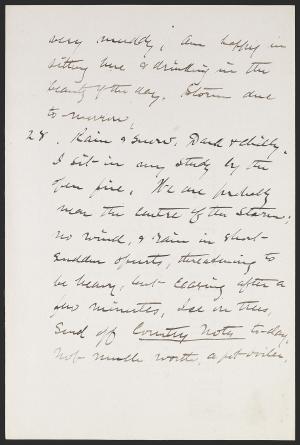 very muddy; am happy in
sitting here & drinking in the
beauty of the day. Storm due
to-morrow,
28. Rain & snow. Dark & chilly.
I sit in my study by the
open fire. We are probably
near the centre of the storm;
no wind, & rain in short
sudden spurts, threatening to
be heavy, but ceasing after a
few minutes, Ice on trees,
Send off Country Notes to-day,
not much worth, a pot-boiler.